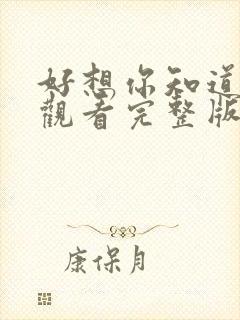 好想你知道
觀看完整版
康保月